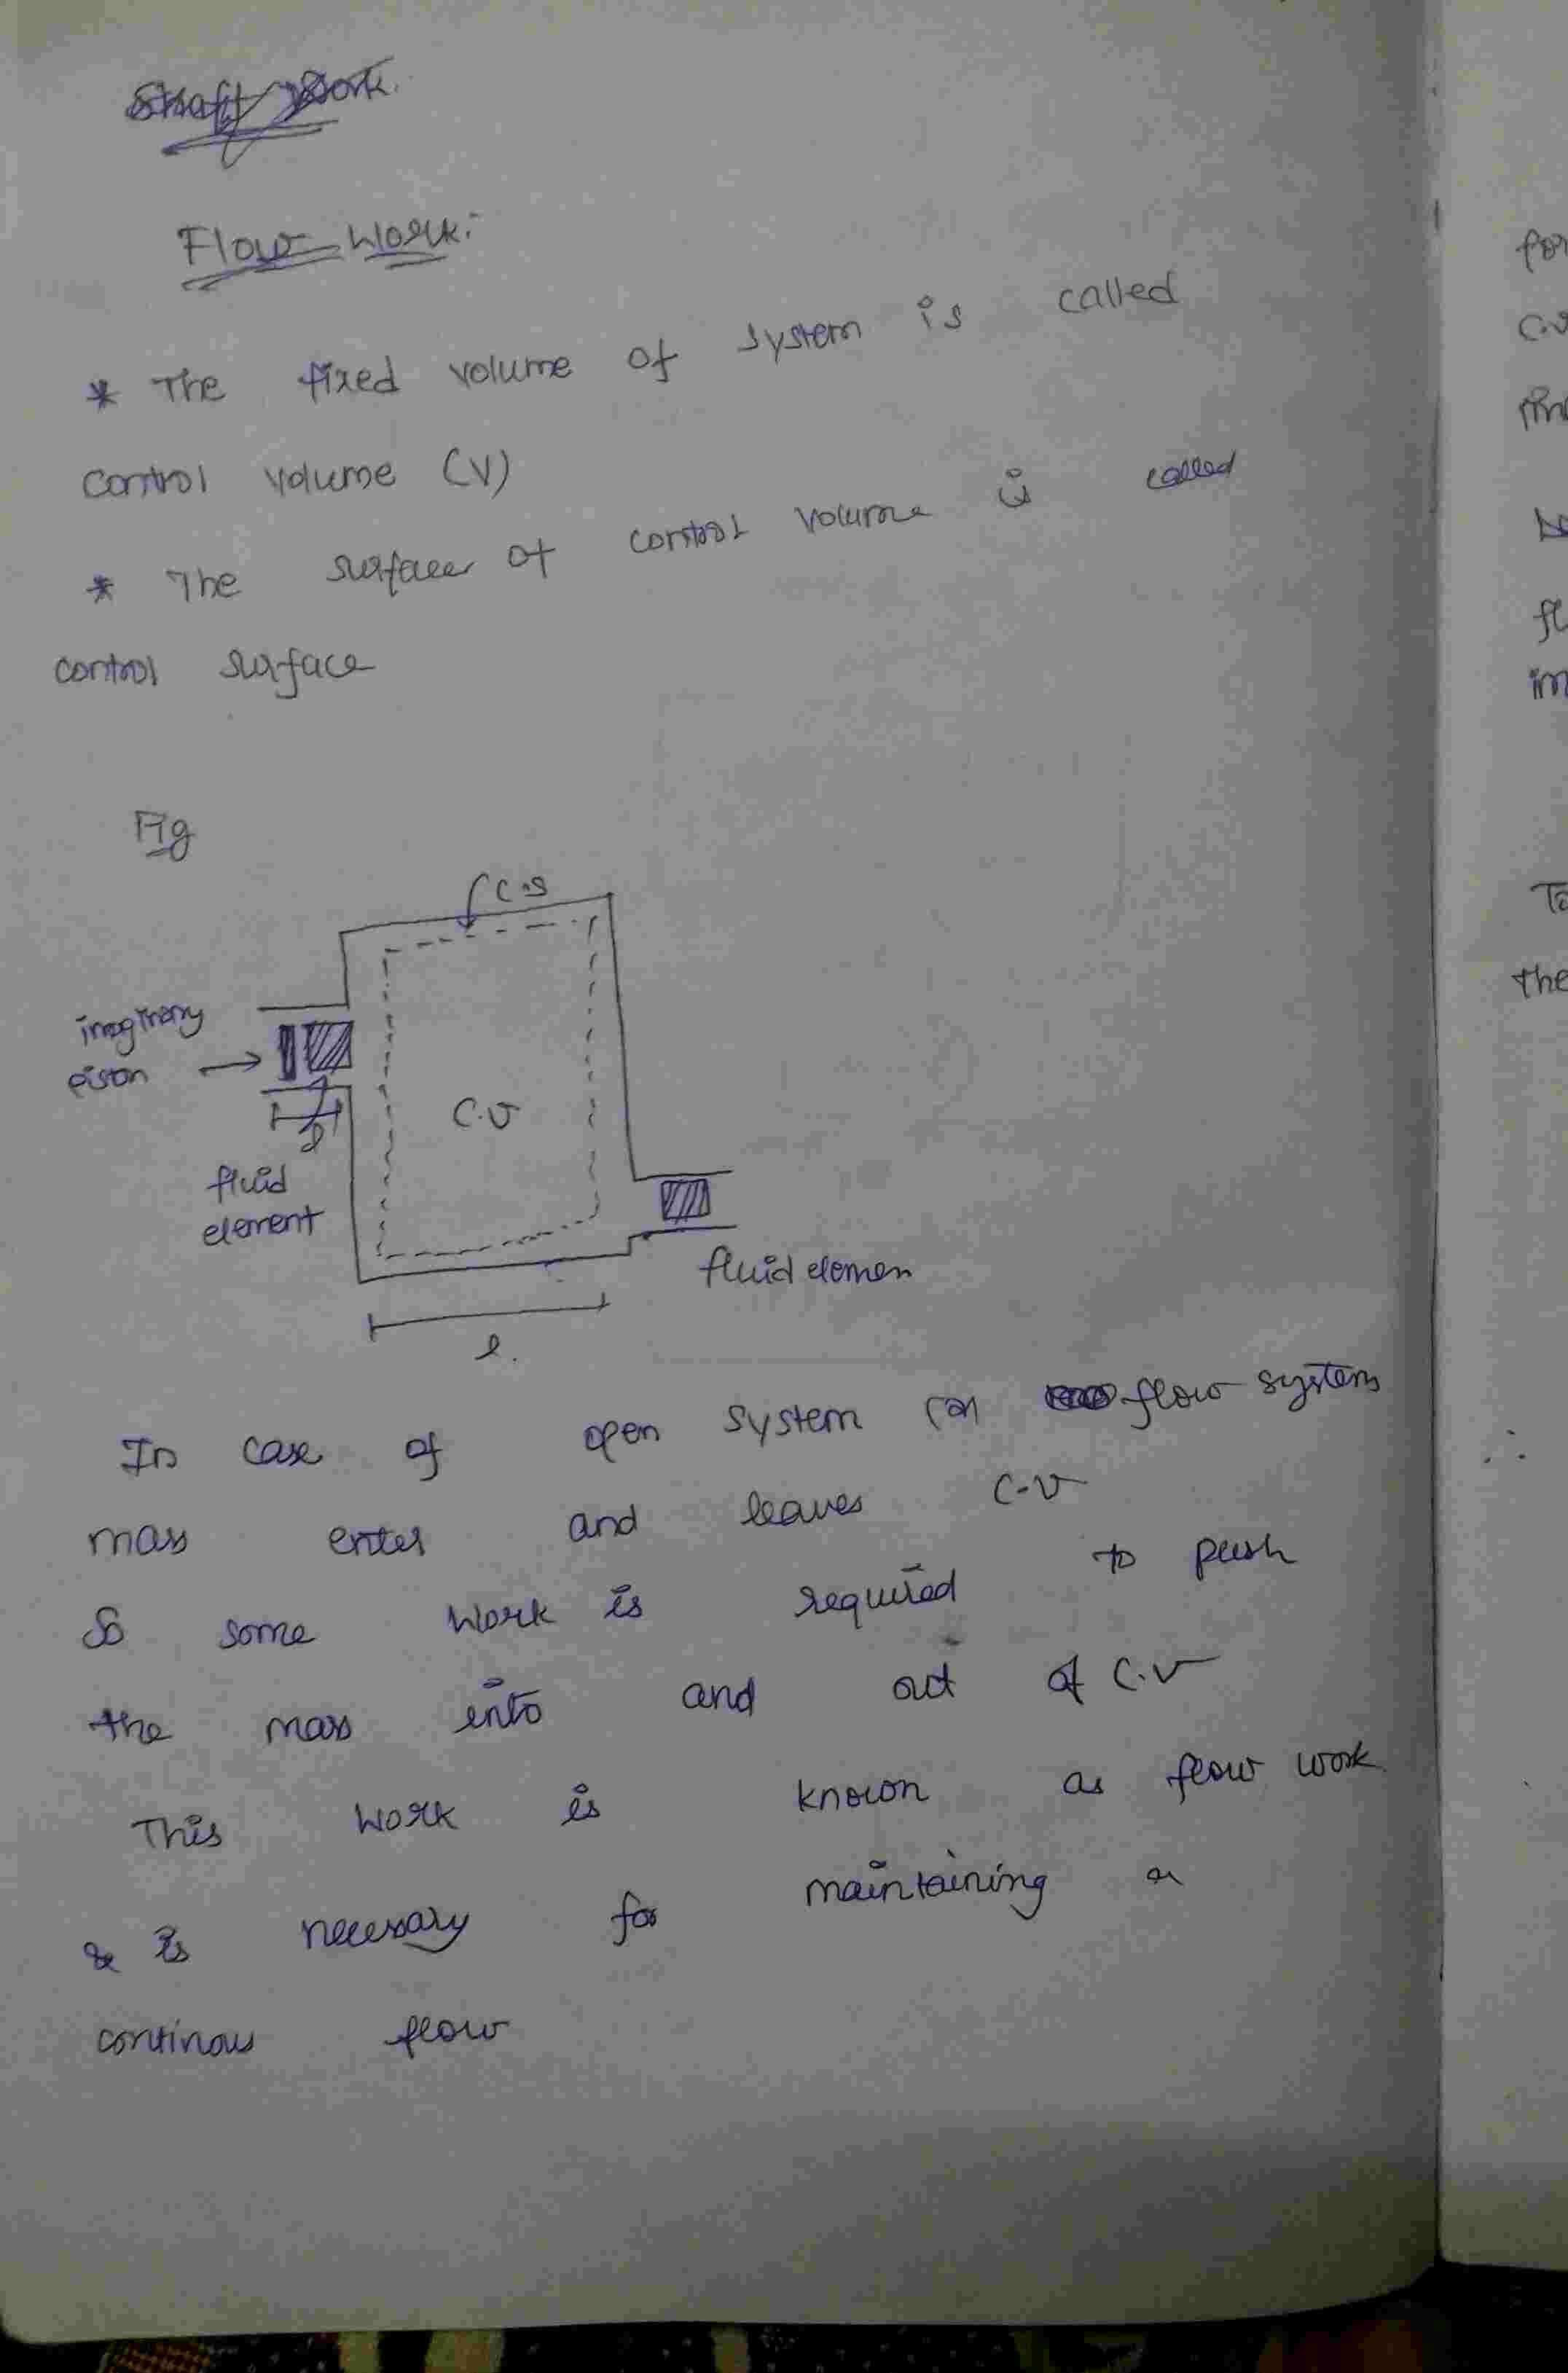 Shaft Work.
Flow Work:-
* The fixed volume of system is called
control volume (V)
* The surface of control volume is called
control surface
Fig
C.S
imaginary
piston
C.V
l
fluid
element
fluid elemen
l.
In case of open system (or) flow system
mass enter and leaves C.V
So some work is required to push
the mass into and out of C.V
This work is known as flow work
& is necessary for maintaining a
continous flow
for
C.V
the